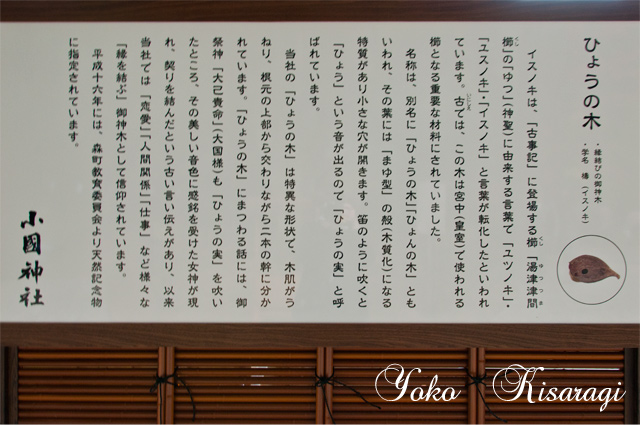 ひょうの木
・縁結びの御神木
・学名 椿（イスノキ）
イスノキは、「古事記」に登場する櫛「湯津津間
くし ゆつつま
櫛」の「ゆつ」（神聖）に由来する言葉で「ユツノキ」・
ぐし
「ユスノキ」・「イスノキ」と言葉が転化したといわれ
ています。古では、この木は宮中（皇室）で使われる
いにしえ
櫛となる重要な材料にされていました。
名称は、別名に「ひょうの木」「ひょんの木」とも
いわれ、その葉には「まゆ型」の殻（木質化）になる
特質があり小さな穴が開きます。笛のように吹くと
「ひょう」という音が出るので「ひょうの実」と呼
ばれています。
当社の「ひょうの木」は特異な形状で、木肌がう
ねり、根元の上部から交わりながら二本の幹に分か
れています。「ひょうの木」にまつわる話には、御
祭神「大己貴命」（大国様）も「ひょうの実」を吹い
たところ、その美しい音色に感銘を受けた女神が現
れ、契りを結んだという古い言い伝えがあり、以来
当社では「恋愛」「人間関係」「仕事」など様々な
「縁を結ぶ」御神木として信仰されています。
平成十六年には、森町教育委員会より天然記念物
に指定されています。
小國神社
Yoko Kisaragi